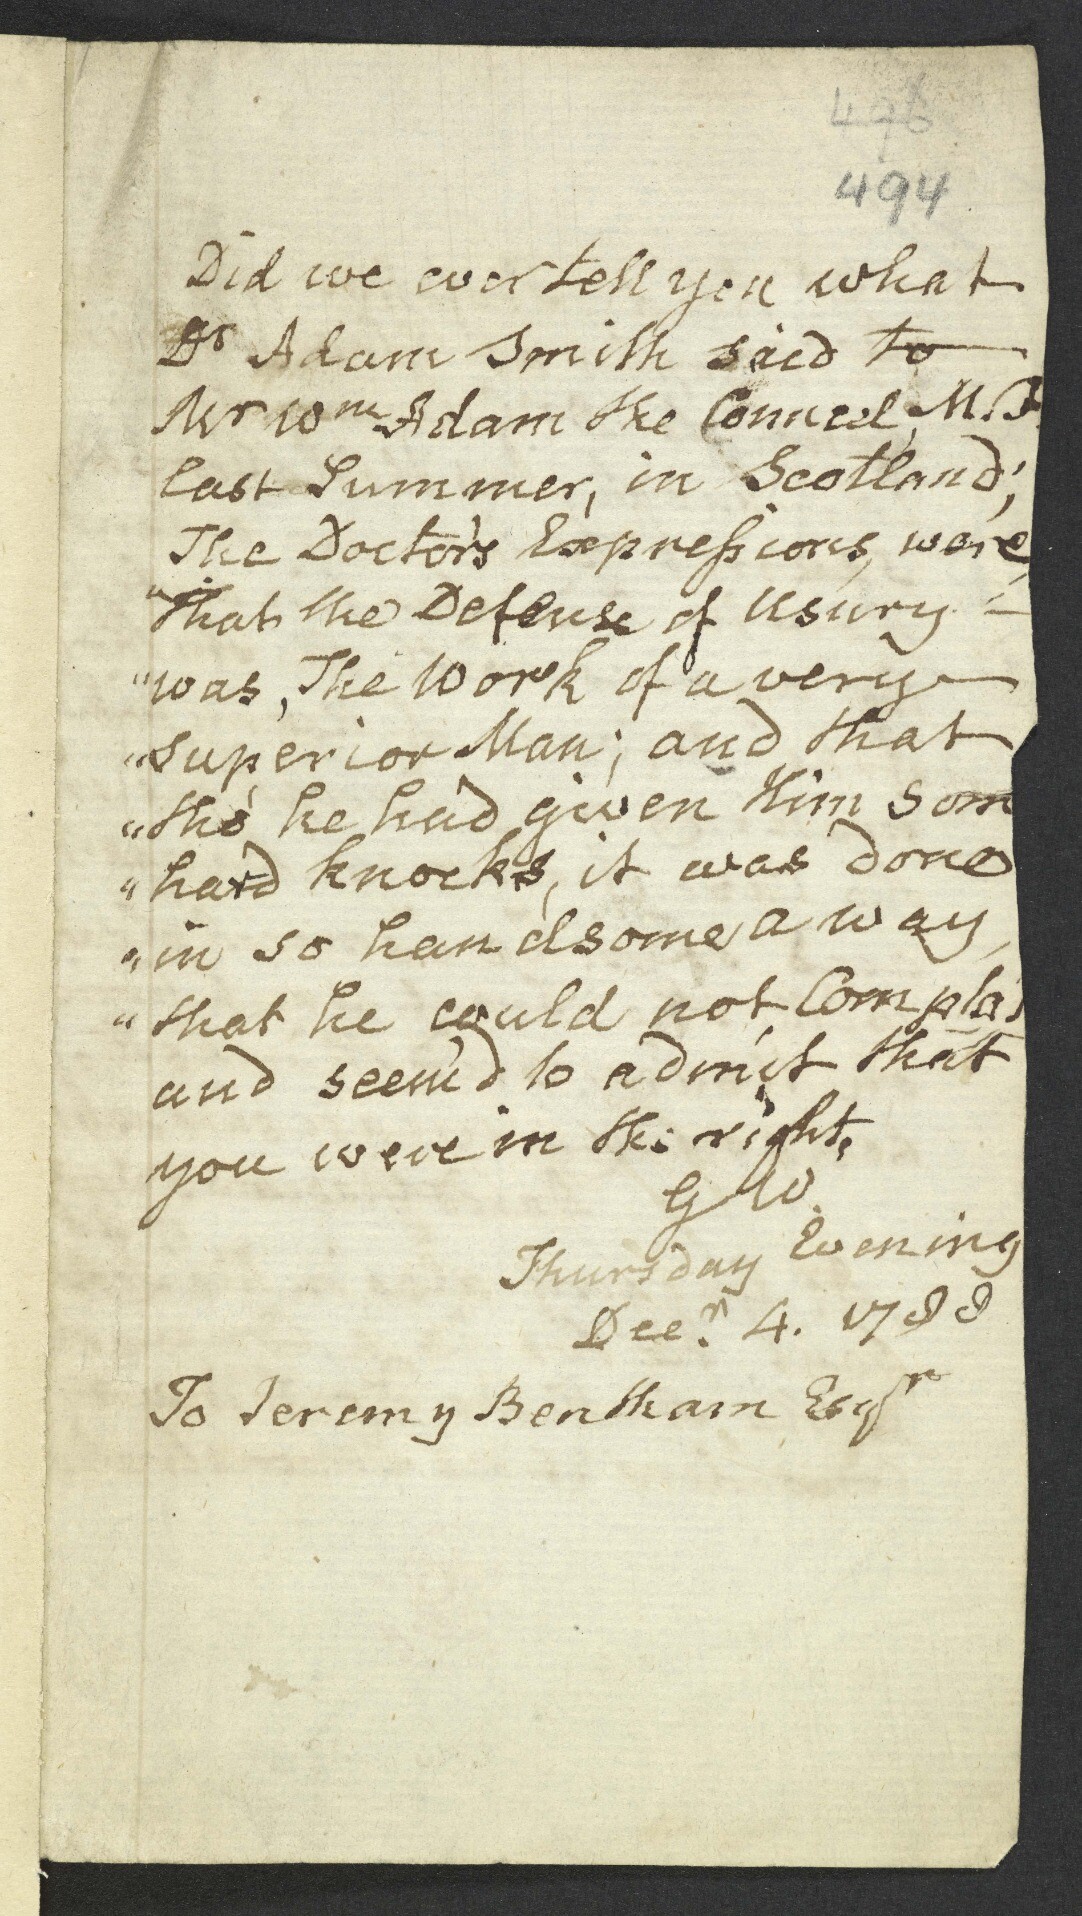 496
494
Did we ever tell you what
Dr Adam Smith said to
Mr Wm Adam the Councel, M.P.
last Summer, in Scotland;
The Doctor's Expressions, were,
"that the Defense of Usury
"was, The Work of a very
"superior Man; and that
"tho' he had given Him som
"hard knocks, it was done
"in so handsome a way,
"that he could not Complai
and seem'd to admit that
you were in the right.
G W.
Thursday Evening
Decr. 4. 1788
To Jeremy Bentham Esqr